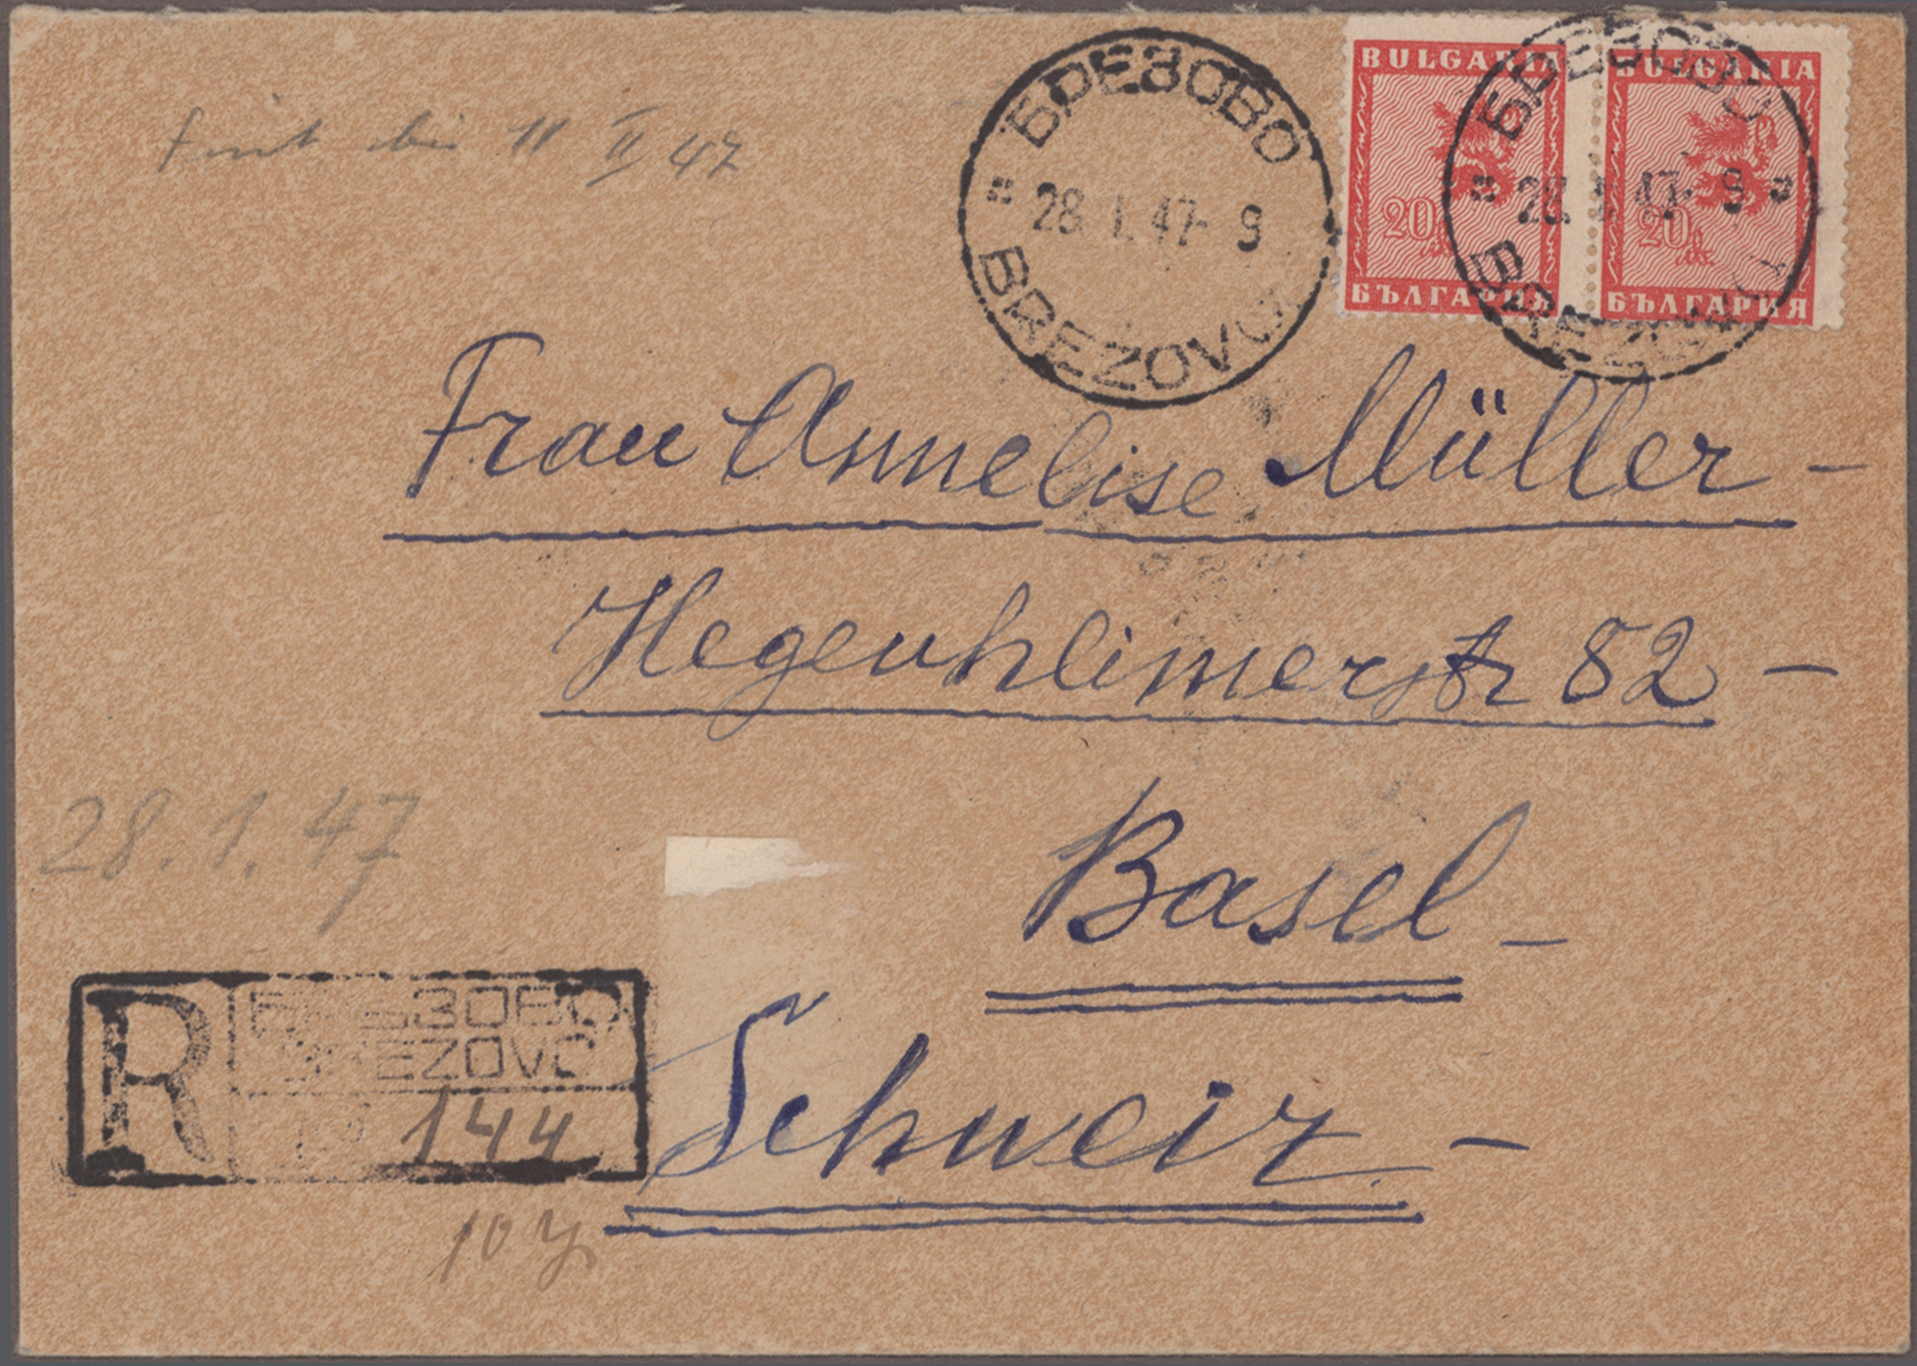 БРЕЗОВО
28. I. 47- 9
BREZOVO
BULGARIA
20 лв.
БЪЛГАРИЯ
BULGARIA
20 лв.
БЪЛГАРИЯ
БРЕЗОВО
28. I. 47- 9
BREZOVO
11 II 47
Frau Annelise Müller -
Hegenheimerstr 82 -
Basel -
28.1.47
R
БРЕЗОВО
BREZOVO
№ 144
Schweiz -